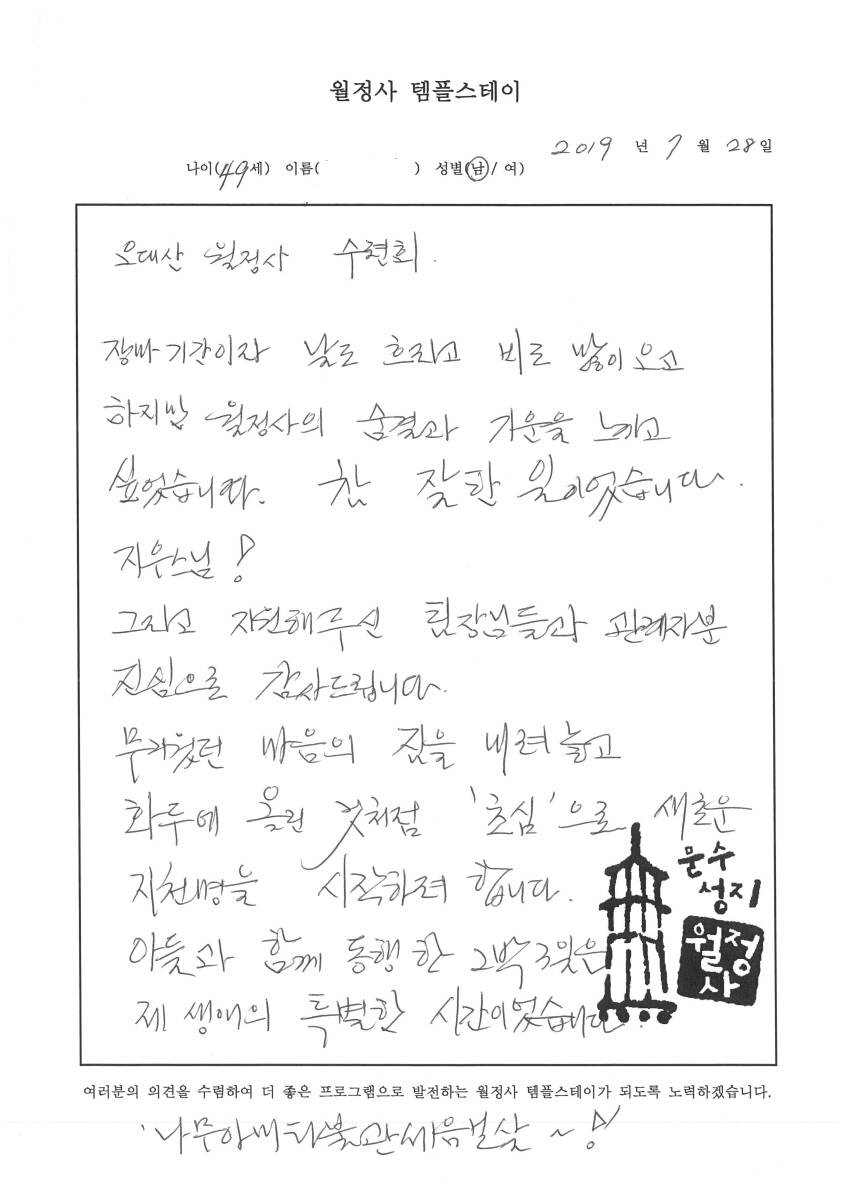 월정사 템플스테이
2019 년 7 월 28 일
나이(49세) 이름( ) 성별(남/ 여)
오대산 월정사 수련회.
장마기간이라 날도 흐리고 비도 많이 오고
하지만 월정사의 숨결과 기운을 느끼고
싶었습니다. 참 잘한 일이었습니다.
지우스님!
그리고 지원해주신 팀장님들과 관계자분
진심으로 감사드립니다.
무거웠던 마음의 짐을 내려놓고
화두에 올린 것처럼 '초심'으로 새로운
지천명을 시작하려 합니다.
아들과 함께 동행한 2박 3일은
제 생애의 특별한 시간이었습니다.
문수
성지
월정
사
여러분의 의견을 수렴하여 더 좋은 프로그램으로 발전하는 월정사 템플스테이가 되도록 노력하겠습니다.
'나무아미타불관세음보살 ~!